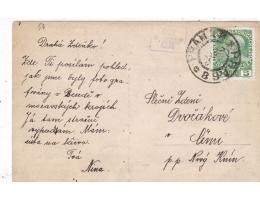 Drahá Zdenko!
Zde Ti posílám pohled,
jak jsme byly foto gra-
fovány v
moravských krojích
Já tam strašně
vypadám Mám
Tvá
Nina
Slečně Zdeně
Dvořákové
p. p. Nový Knín